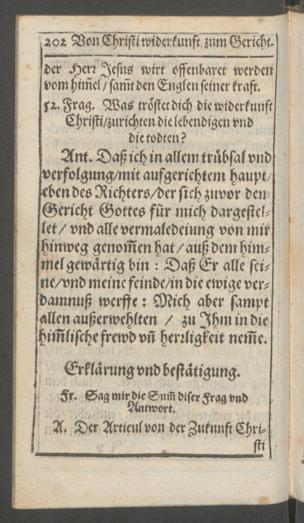 202 Von Christi widerkunft zum Gericht.
der Herr Jesus wirt offenbaret werden
vom him̃el / sam̃t den Englen seiner kraft.
52. Frag. Was tröstet dich die widerkunft
Christi / zurichten die lebendigen vnd
die todten?
Ant. Daß ich in allem trübsal vnd
verfolgung / mit aufgerichtem haupt /
eben des Richters / der sich zuvor den
Gericht Gottes für mich dargestel-
let / vnd alle vermaledeiung von mir
hinweg genom̃en hat / auß dem him-
mel gewärtig bin : Daß Er alle sei-
ne / vnd meine feinde / in die ewige ver-
damnuß werffe : Mich aber sampt
allen außerwehlten / zu Ihm in die
him̃lische frewd vn̄ herrligkeit nem̃e.
Erklärung vnd bestätigung.
Fr. Sag mir die Sum̃ diser Frag vnd
Antwort.
A. Der Articul von der Zukunft Chri-
sti